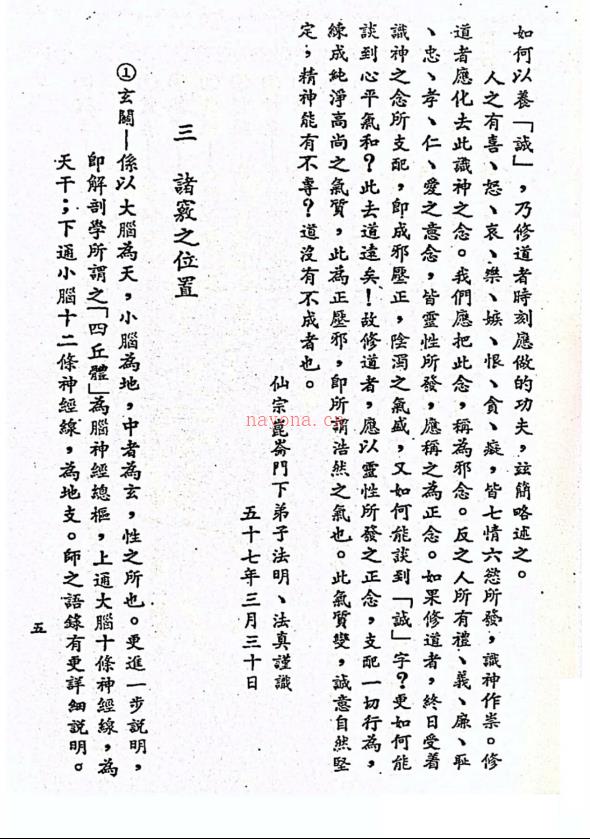 如何以養「誠」，乃修道者時刻應做的功夫，玆簡略述之。
人之有喜、怒、哀、樂、嫉、恨、貪、癡，皆七情六慾所發，識神作祟。修
道者應化去此識神之念。我們應把此念，稱為邪念。反之人所有禮、義、廉、恥
、忠、孝、仁、愛之意念，皆靈性所發，應稱之為正念。如果修道者，終日受着
識神之念所支配，即成邪壓正，陰濁之氣盛，又如何能談到「誠」字？更如何能
談到心平氣和？此去道遠矣！故修道者，應以靈性所發之正念，支配一切行為，
練成純淨高尚之氣質，此為正壓邪，即所謂浩然之氣也。此氣質變，誠意自然堅
定，精神能有不專？道沒有不成者也。
仙宗崑崙門下弟子法明、法真謹識
五十七年三月三十日
三　諸竅之位置
①玄關—係以大腦為天，小腦為地，中者為玄，性之所也。更進一步説明，
即解剖學所謂之「四丘體」為腦神經總樞，上通大腦十條神經線，為
天干；下通小腦十二條神經線，為地支。師之語錄有更詳細説明。
五
nayona.cn